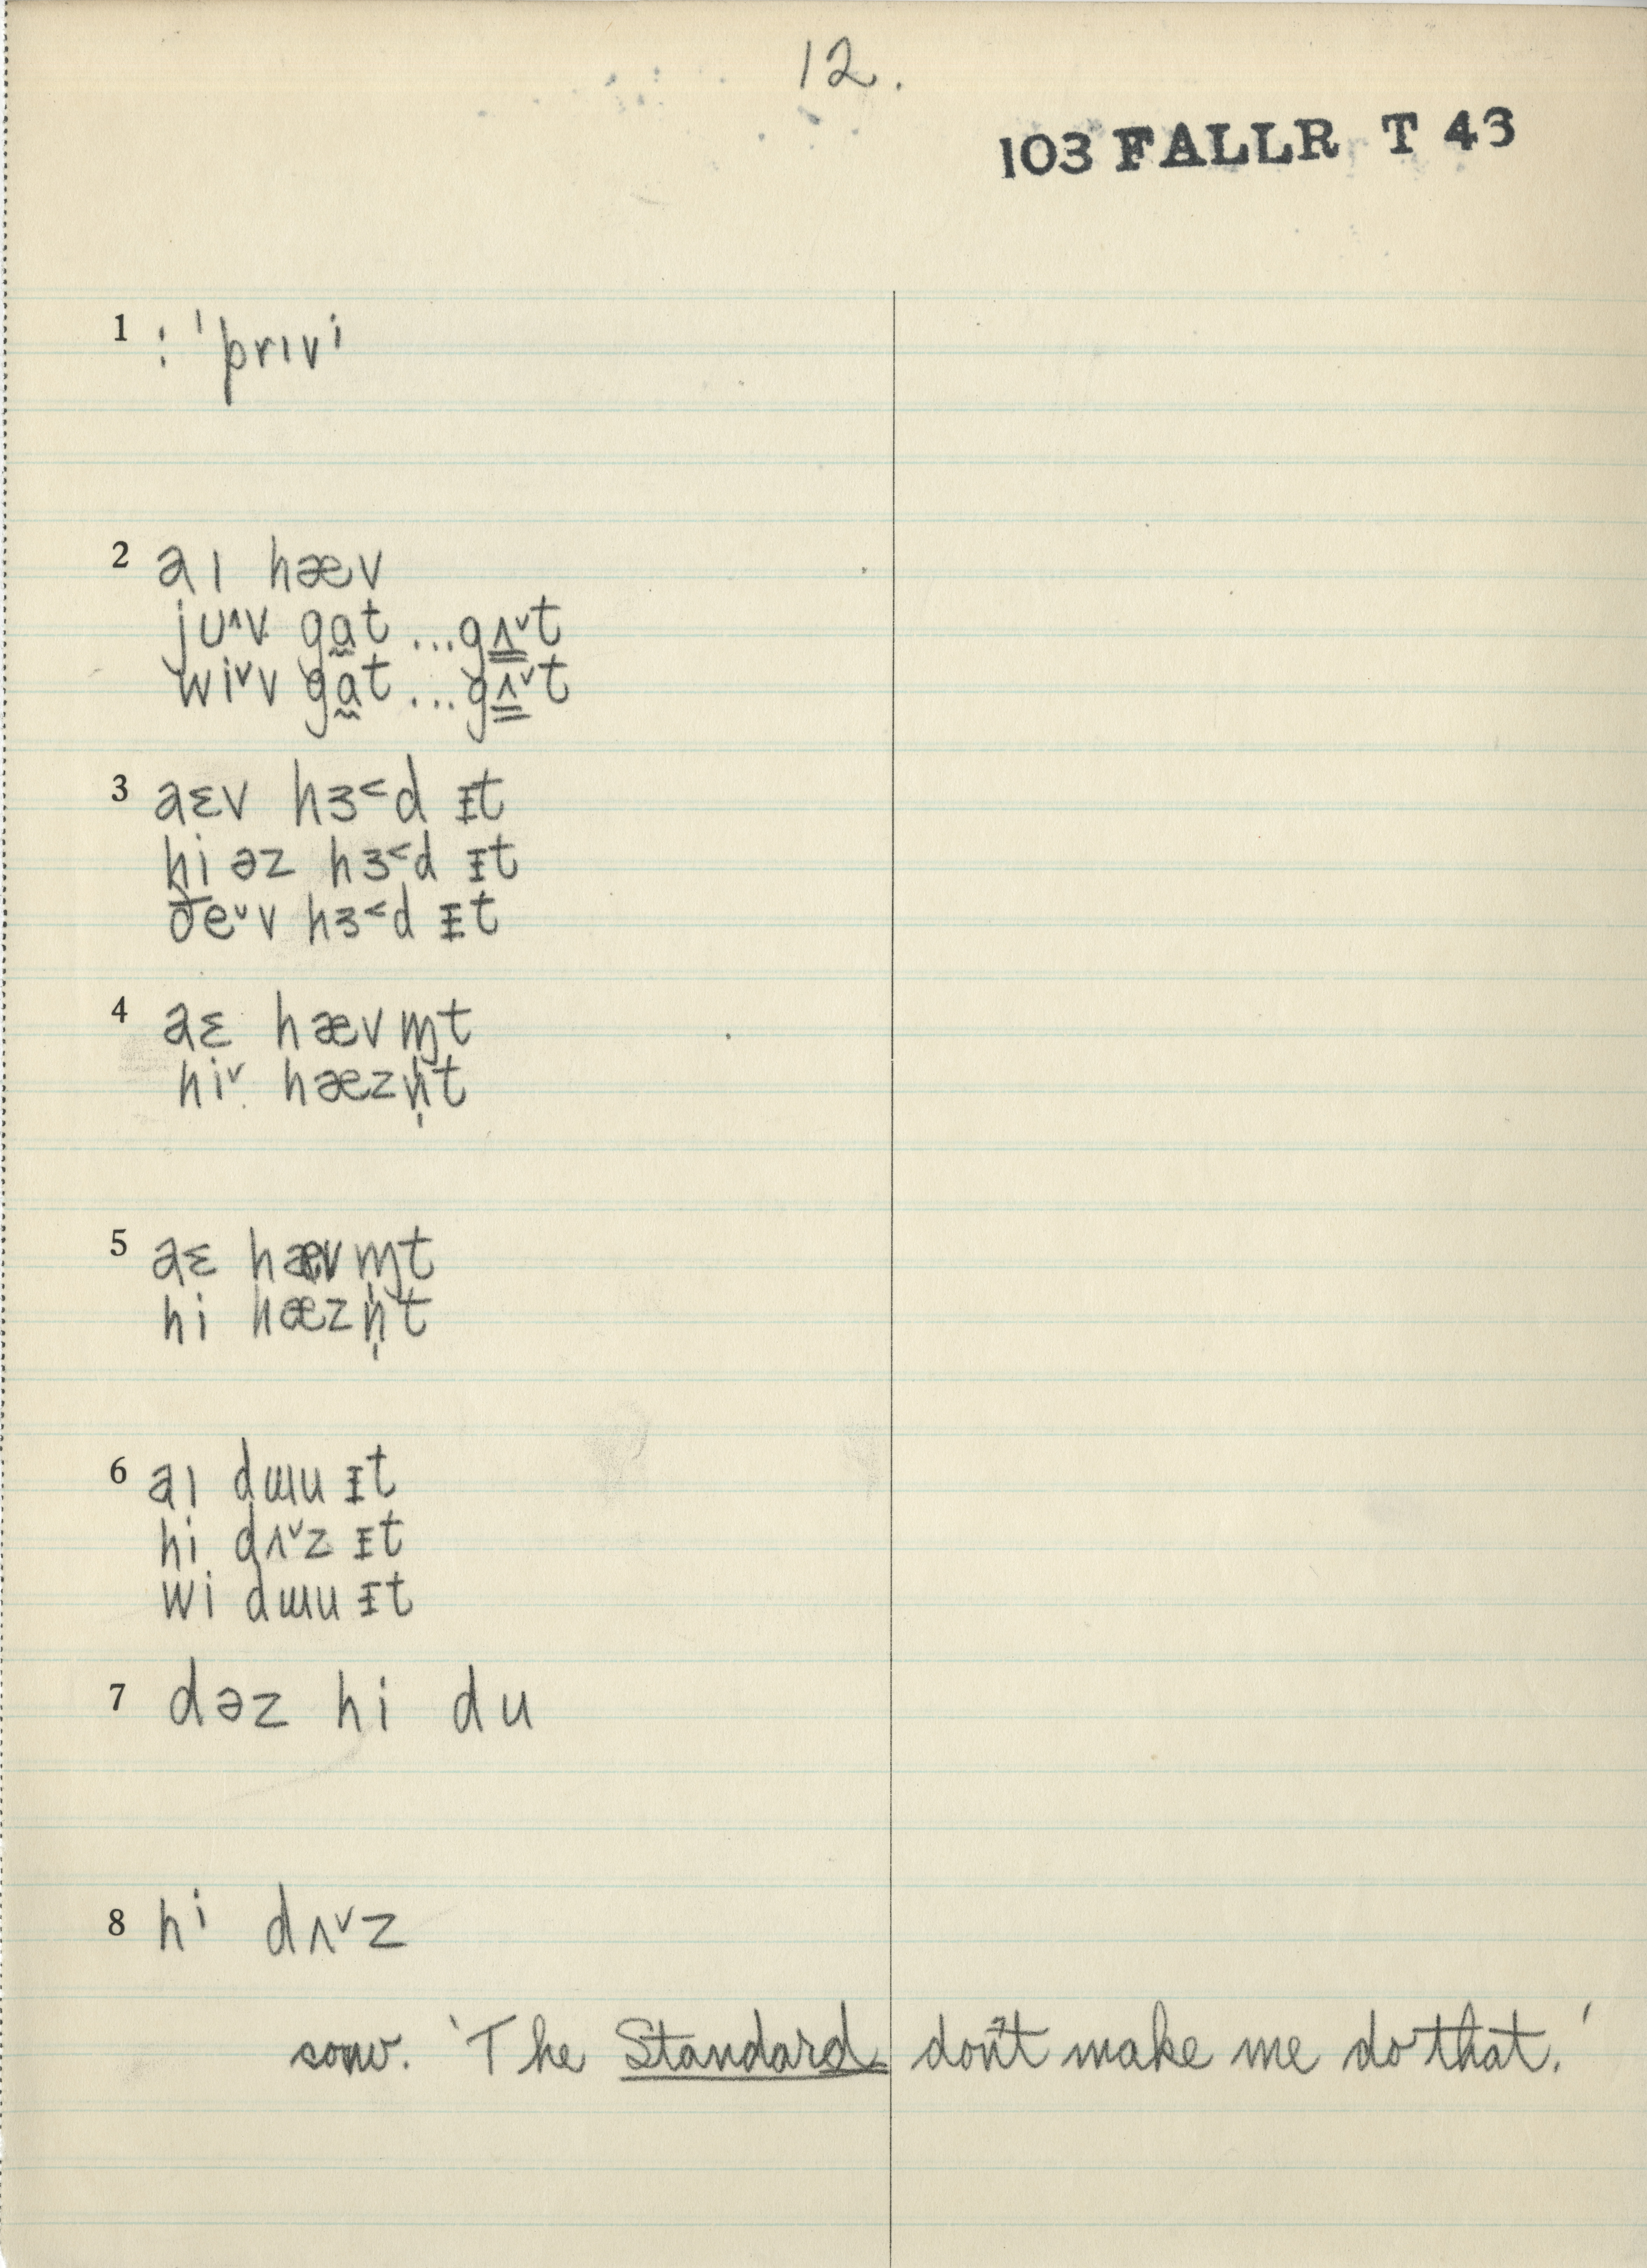 12.
103 FALLR T 43
1 : ˈprɪvi
2 aɪ hæv
ju˄v ga̰t ... gʌ̳˅t
wi˅v ga̰t ... gʌ̳˅t
3 aɛv hɜ˂d ᵻt
hi əz hɜ˂d ᵻt
ðe˅v hɜ˂d ᵻt
4 aɛ hævɱ̍t
hi˅ hæzn̩t
5 aɛ hævɱ̍t
hi hæzn̩t
6 aɪ dɯu ᵻt
hi dʌ˅z ᵻt
wi dɯu ᵻt
7 dəz hi du
8 hi dʌ˅z
conv. 'The Standard don't make me do that.'